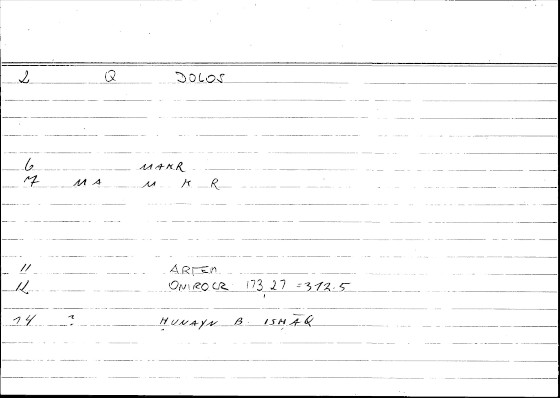 2 Q DOLOS
6 MAKR
7 MA M K R
11 ARTEM
12 ONIROCR 173,27 = 312.5
14 ? ḤUNAYN B. ISḤĀQ